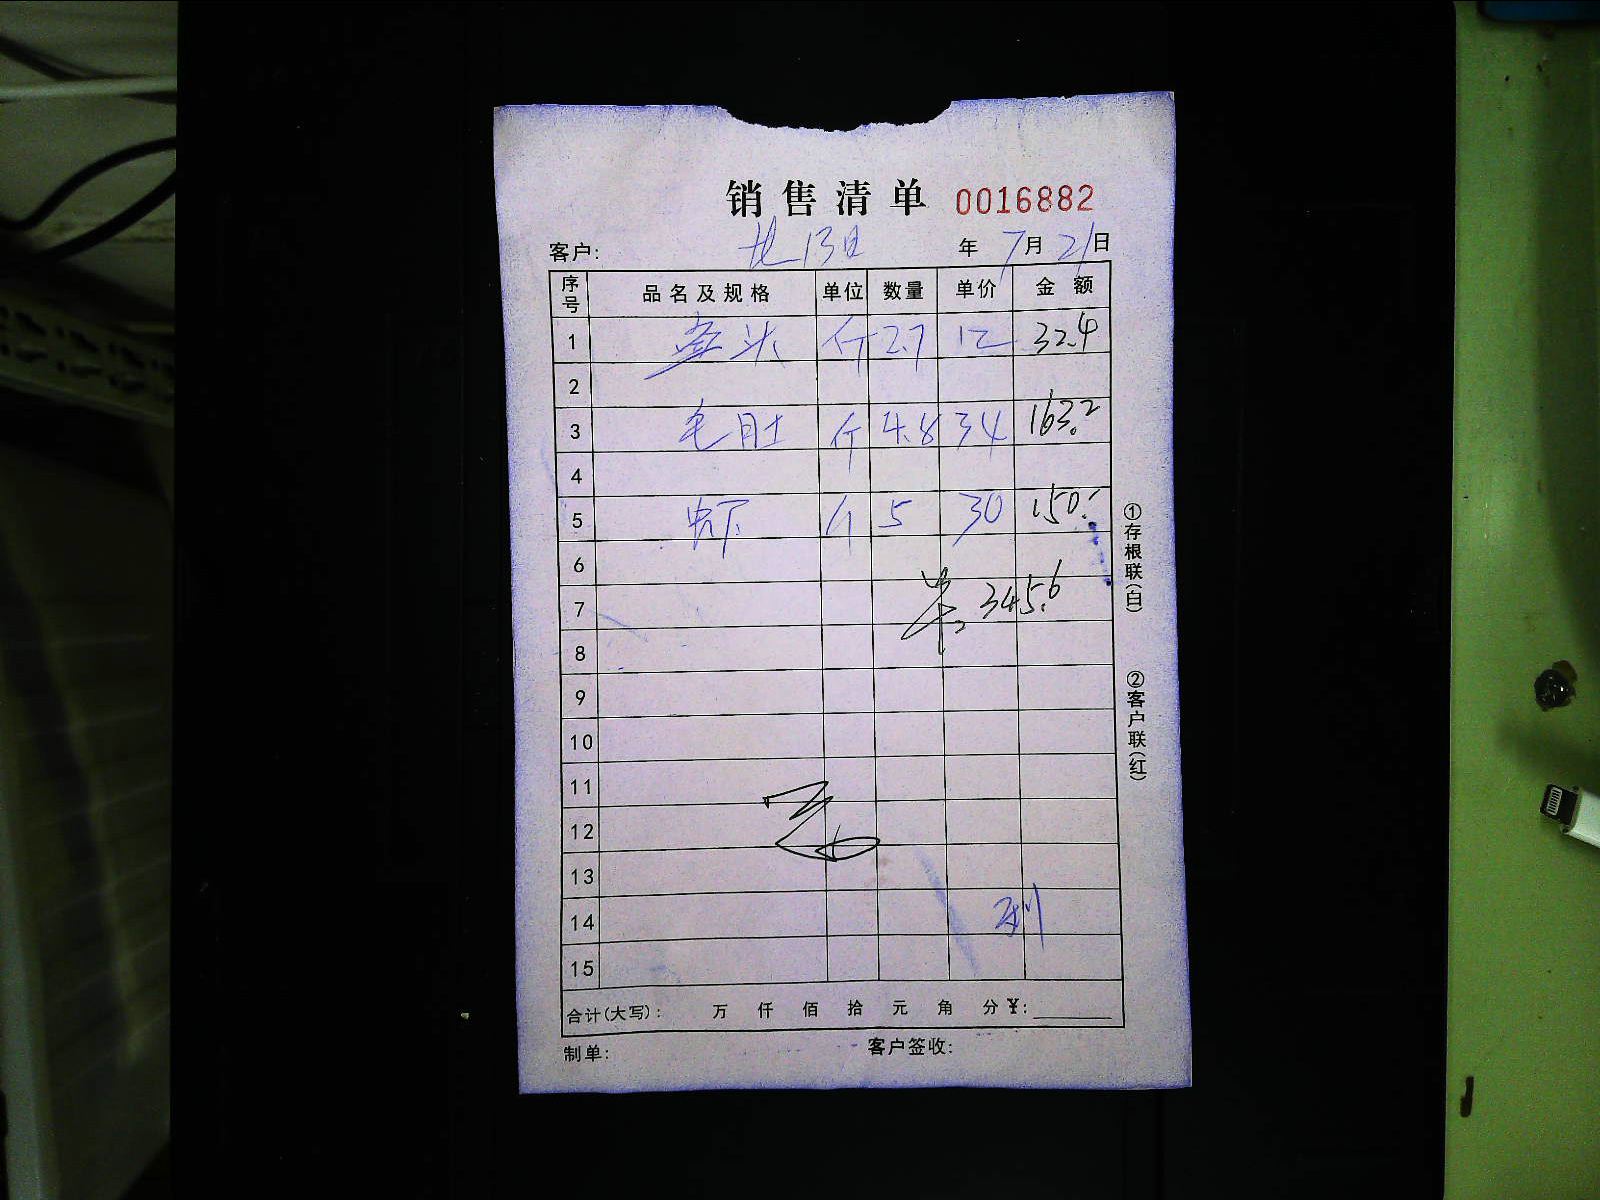 销售清单 0016882
客户: 年 7月 21日
序号 品名及规格 单位 数量 单价 金额
1 斤 2.7 12 32.4
2
3 毛肚 斤 4.8 34 163.2
4
5 虾 斤 5 30 150.-
6
7 345.6
8
9
10
11
12
13
14
15
合计(大写): 万 仟 佰 拾 元 角 分 ¥:
制单: 客户签收:
①存根联(白)
②客户联(红)